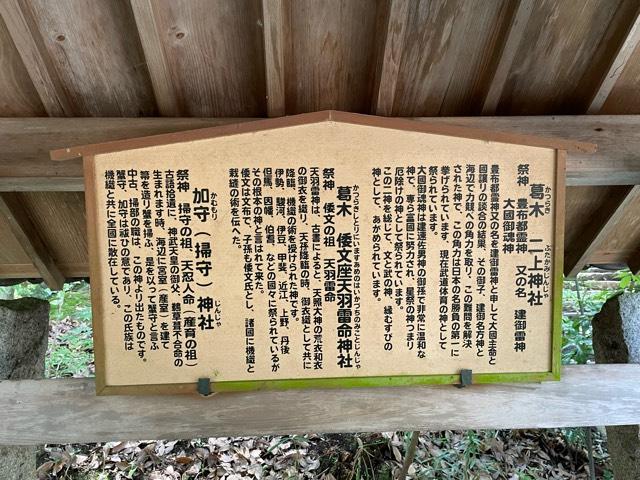 葛木 二上神社
かつらぎ ふたかみじんじゃ
祭神 豊布都霊神 又の名 建御雷神
大國御魂神
豊布都霊神又の名を建御雷神と申して大國主命と
國譲りの談合の結果、その御子、建御名方神と
海辺で力競べの角力を取り、この難問を解決
された神で、この角力は日本の名勝負の第一に
挙げられています。現在武道体育の神として
祭られています。
大國御魂神は素戔佐男神の御孫で非常に温和な
神で、専ら富國に努力され、星祭の神つまり
厄除けの神として祭られています。
この二神を総じて、文と武の神、縁むすびの
神として、あがめられています。
葛木 倭文座天羽雷命神社
かつらぎしとりにいますあめのはいかつちのみことじんじゃ
祭神 倭文の祖 天羽雷命
天羽雷命は、古書によると、天照大神の荒衣和衣
の御衣を織り、天孫降臨の時、御衣織として共に
降臨、機織の術を授けられた神です。
伊勢、駿河、伊豆、甲斐、近江、上野、丹後
但馬、因幡、伯耆、などの國々に祭られているが
その根本の神と言はれて来た。
倭文は文布で、子孫も倭文氏とし、諸國に機織と
栽縫の術を伝へた。
加守(掃守)神社
かむもり じんじゃ
祭神 掃守の祖、天忍人命(産育の祖)
古語拾遺に、神武天皇の御父、鵜草葺不合命の
生まれます時、海辺に宮室(産室)を建て
箒を造り蟹を掃ふ、是を以って蟹守と言ふ
中古、掃部の職は、この神より出たものです。
蟹守、加守は祓ひの意であり、この氏族は
機織と共に全國に散在している。